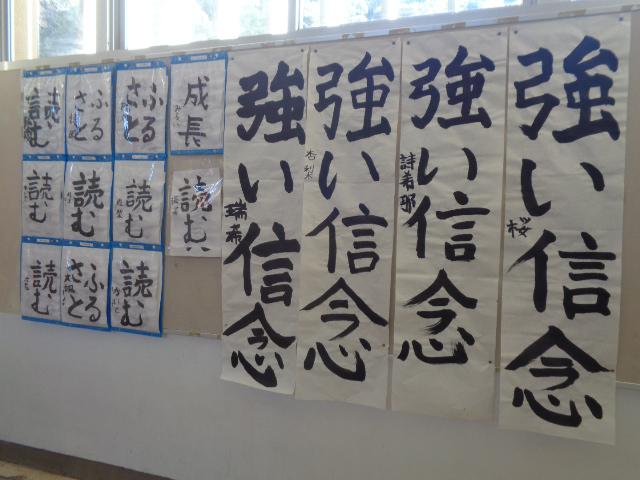 読む
ふる
さと
ふる
さと
成長
読む
読む
読む
読む
読む
ふる
さと
読む
強い信念
瑞希
強い信念
杏梨
強い信念
詩希耶
強い信念
桜